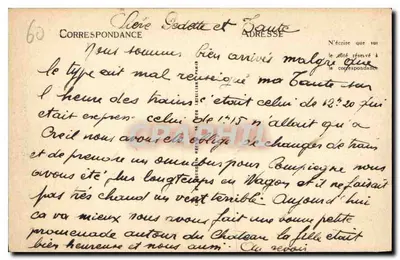 60
Chère Dedette et Tante
CORRESPONDANCE ADRESSE
N'écrire que sur
le côté réservé à
la correspondance
Nous sommes bien arrivés malgré que
le type ait mal renseigné ma Tante sur
l'heure des trains c'était celui de 12h20 qui
était express celui de 1h15 n'allait qu'à
Creil nous avons été obligé de changer de train
et de prendre un omnibus pour Compiègne nous
avons été plus longtemps en Wagon et il ne faisait
pas très chaud un vent terrible. Aujourd'hui
ça va mieux nous avons fait une bonne petite
promenade autour du Chateau la fille était
bien heureuse et nous aussi. Au revoir